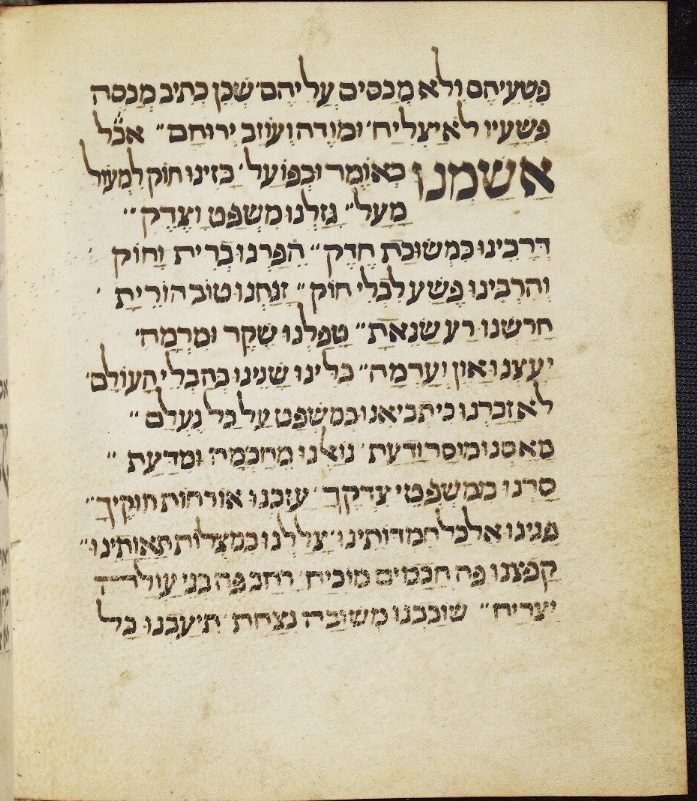 פשעיהם ולא מכסים עליהם׳ שכן כתיב מכסה
פשעיו לא יצליח׳ ומודה ועוזב ירוחם״ אבל
אשמנו באומר ובפועל׳ בזינו חוק למעול
מעל״ גזלנו משפט וצדק״
דרכינו כמשוכת חדק״ הפרנו ברית וחוק
והרבינו פשע לבלי חוק״ זנחנו טוב הורית
חרשנו רע שנאת״ טפלנו שקר ומרמה׳
יעצנו און וערמה״ כלינו שנינו בהבלי העולם׳
לא זכרנו כי תביאנו במשפט על כל נעלם״
מאסנו מוסר ודעת׳ נואלנו מחכמה ומדעת״
סרנו ממשפטי צדקך׳ עזבנו אורחות חוקיך״
פנינו אל כל חמדותינו׳ צללנו במצולות תאותינו״
קפצנו פה חכמים מוכיח׳ רחב פה בני עולה
יצריח״ שובבנו משובה נצחת׳ תיעבנו כל